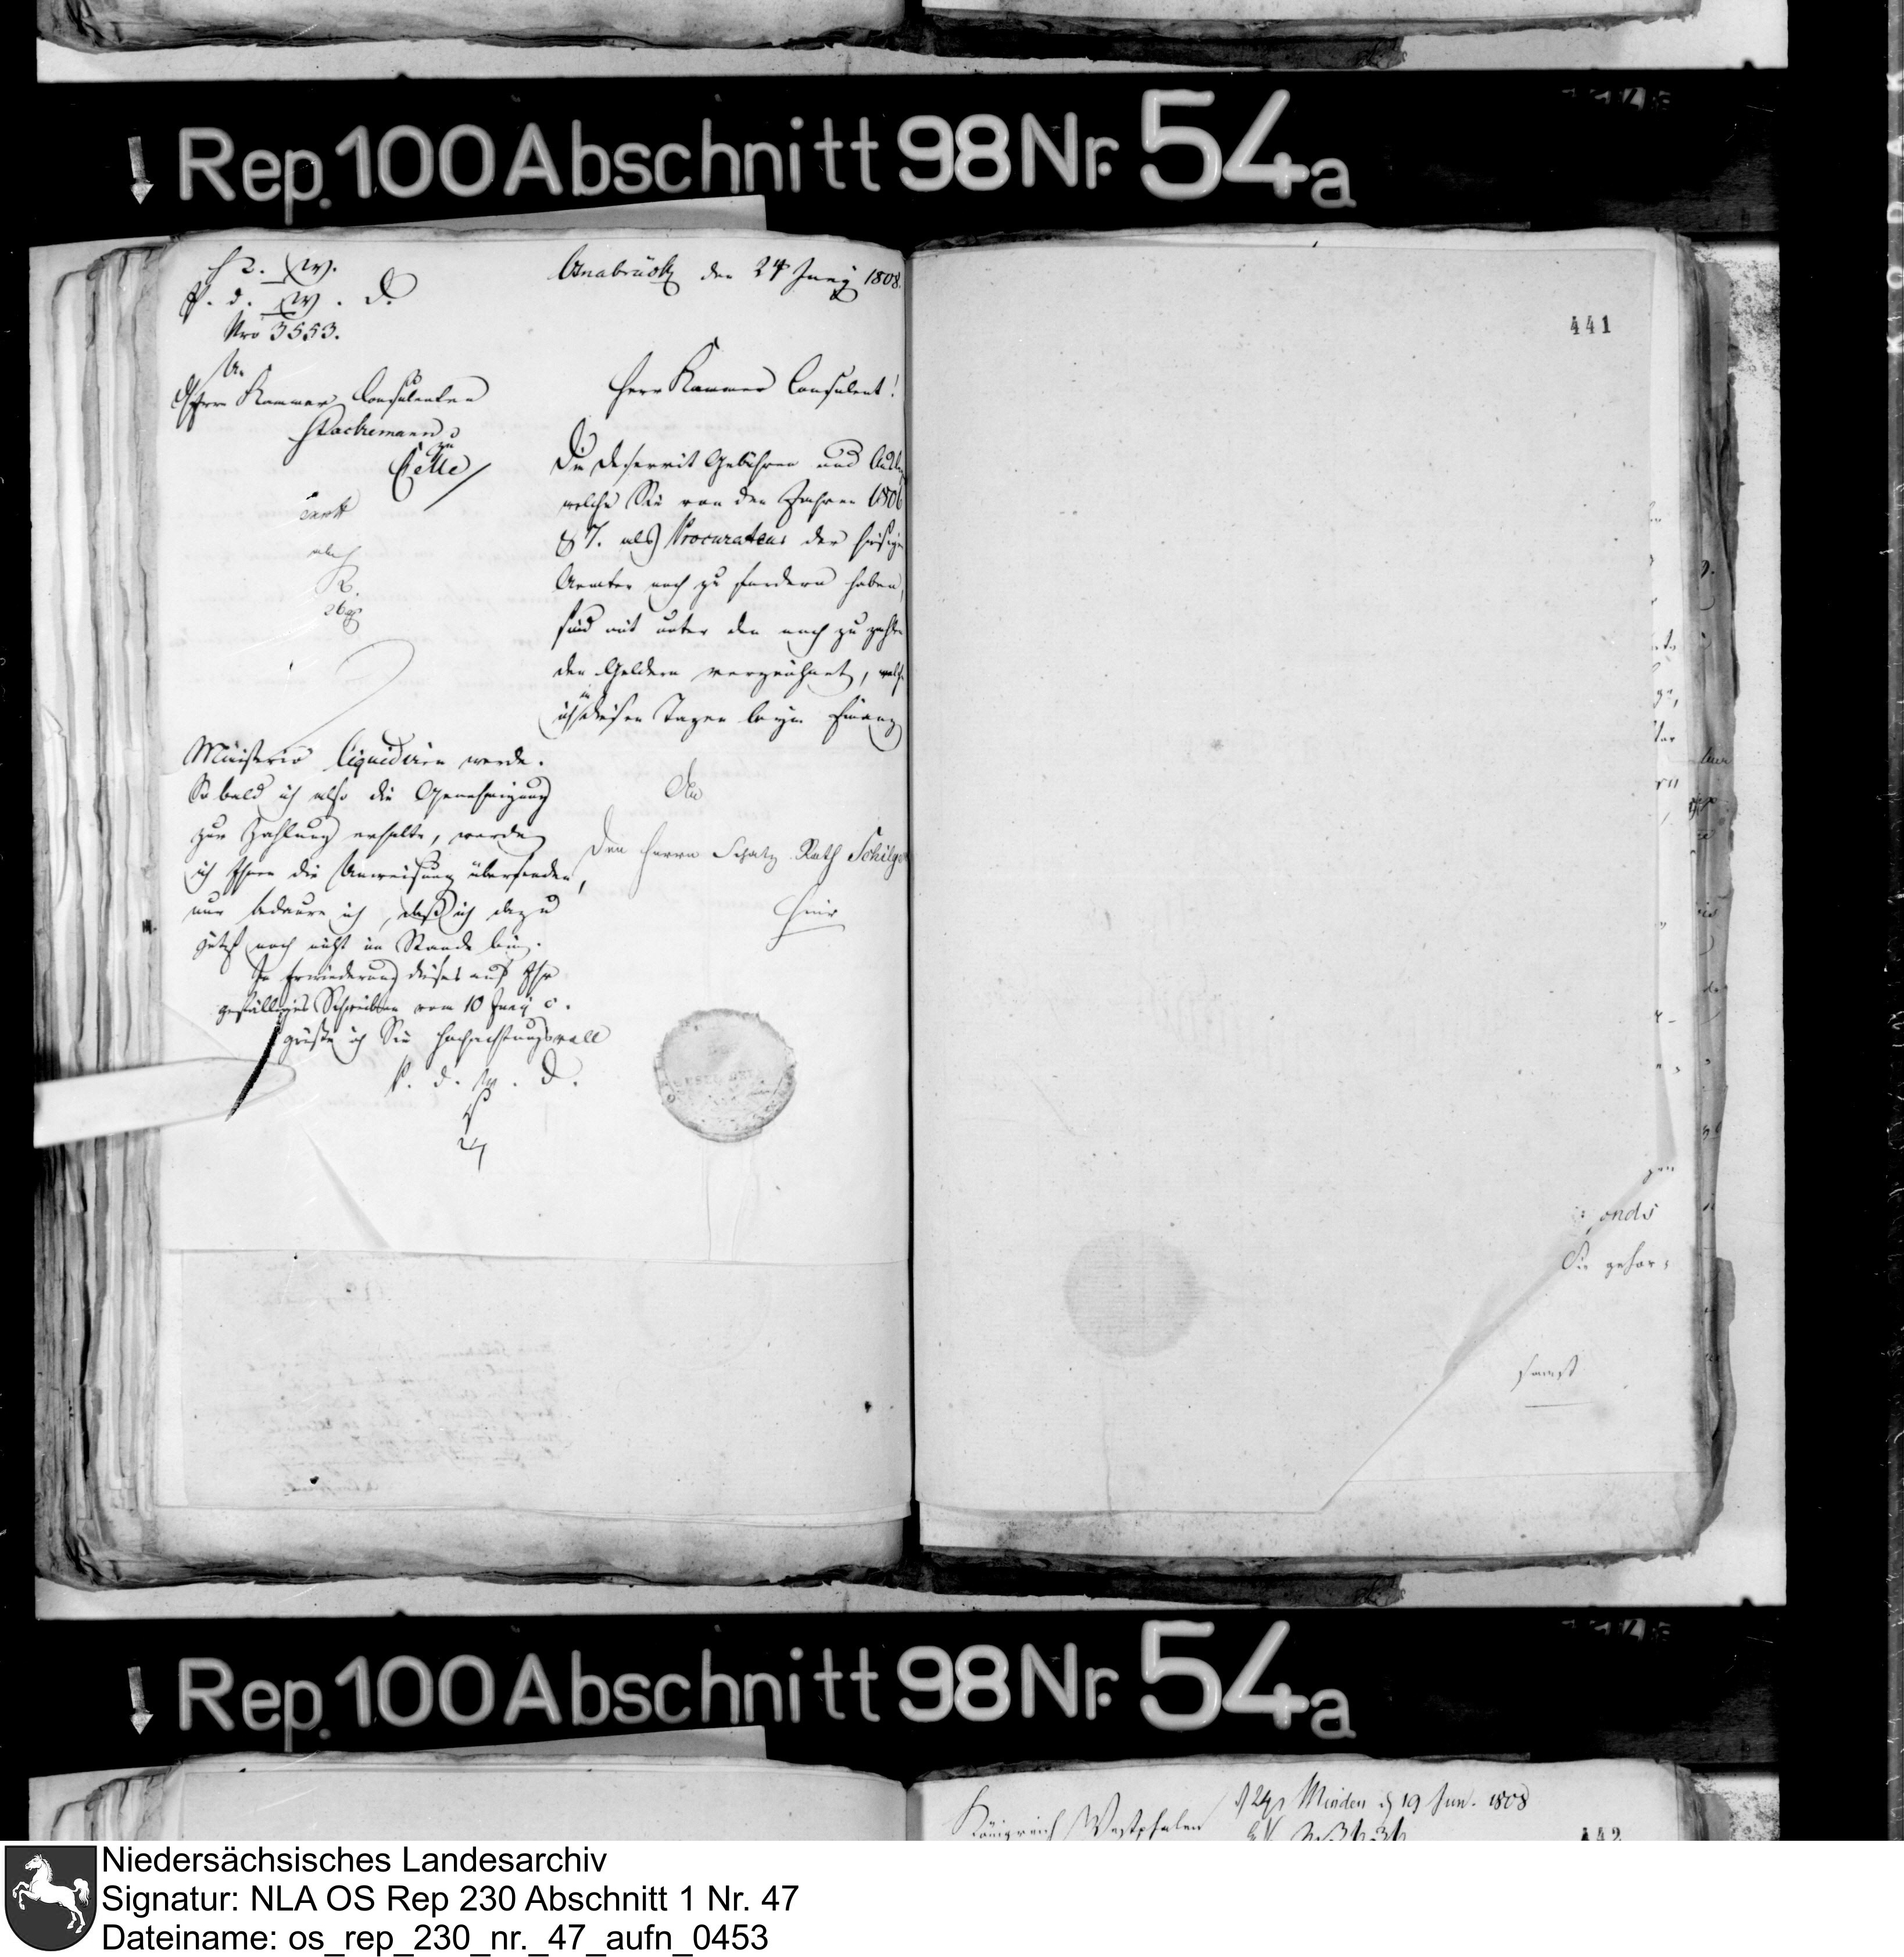 Rep. 100 Abschnitt 98 Nr. 54a
K. W.
P. d. W. D.
Nro 3553.
An
Herrn Kammer Consulenten
zu
Celle
Osnabrück den 24 Juny 1808.
Herr Kammer Consulent!
Die Deservit Gebühren und
welche Sie von den Jahren 1806
& 7. als Procurateur der hiesigen
Aemter noch zu fordern haben,
sind mit unter den noch zu zahlen
den Geldern verzeichnet, welche
ich in diesen Tagen beym Finanz
Ministerio liquidiren werde.
So bald ich also die Genehmigung
zur Zahlung erhalte, werde
ich Ihnen die Anweisung übersenden,
nur bedaure ich, daß ich dazu
jetzt noch nicht im Stande bin.
In Erwiederung dieses auf Ihr
gefälliges Schreiben vom 10 Juny c.
grüße ich Sie hochachtungsvoll
P. d. W. D.
24
An
Den Herrn Schatz Rath
hier
441
onds
Sie gehor:
samst
Rep. 100 Abschnitt 98 Nr. 54a
Königreich Westphalen
Minden d 19 Jun. 1808
442
Niedersächsisches Landesarchiv
Signatur: NLA OS Rep 230 Abschnitt 1 Nr. 47
Dateiname: os_rep_230_nr._47_aufn_0453